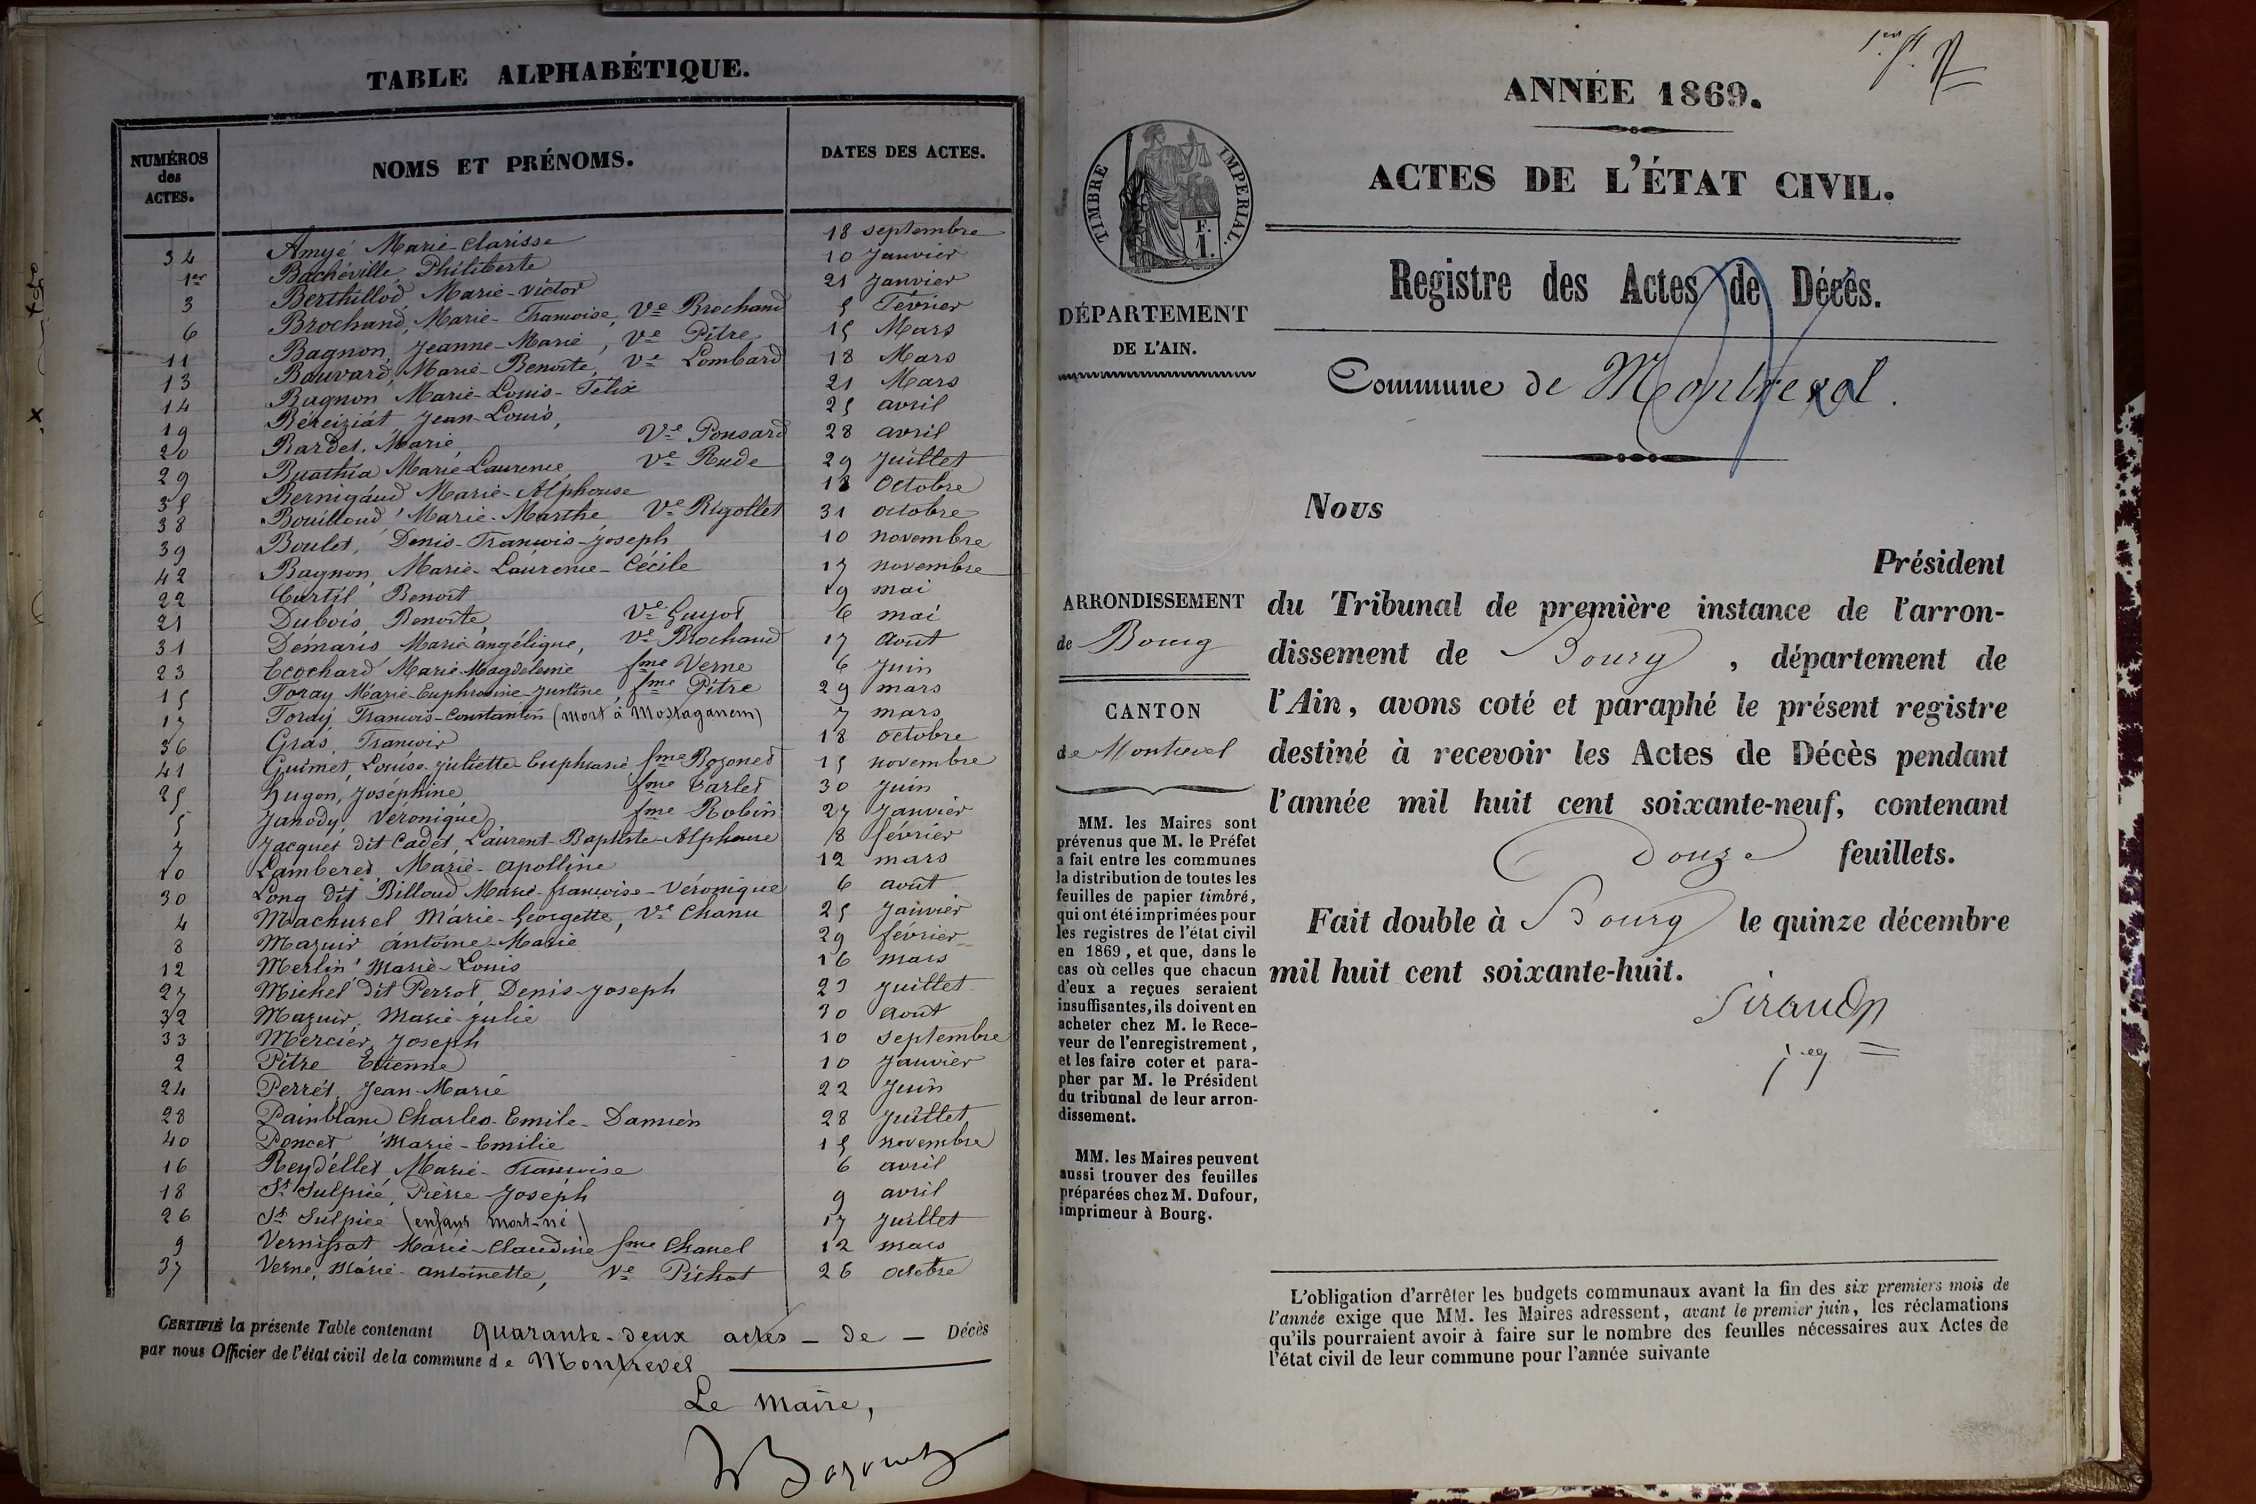 TABLE ALPHABÉTIQUE.
NUMÉROS des ACTES. NOMS ET PRÉNOMS. DATES DES ACTES.
34 Amyé Marie-Clarisse 18 septembre
1er Bachéville, Philiberte 10 Janvier
3 Berthillod, Marie-Victor 21 Janvier
6 Brochand, Marie-Francoise, Ve Brochand 5 Février
11 Bagnon, Jeanne-Marie, Ve Pitre 15 Mars
13 Bouvard, Marie-Benoite, Ve Lombard 18 Mars
14 Bagnon Marie-Louis-Félix 21 Mars
19 Béreiziat Jean-Louis, 25 avril
20 Bardet, Marie, Ve Ponsard 28 avril
29 Buathia Marie-Laurence Ve Rude 29 Juillet
35 Bernigaud Marie-Alphonse 18 Octobre
38 Bouilloud, Marie-Marthe, Ve Rigollet 31 octobre
39 Boulet, Denis-Francois-Joseph 10 novembre
42 Bagnon, Marie-Laurence-Cécile 17 novembre
22 Curtil Benoit 19 mai
21 Dubois, Benoite, Ve Guyot 6 mai
31 Démaris Marie angélique, Ve Brochand 17 août
23 Ecochard Marie-Magdeleine fme Verne 6 Juin
15 Foray Marie-Euphrosine-Justine, fme Pitre 29 mars
17 Foray Francois-Constantin (mort à Mostaganem) 7 mars
36 Gras, Francois 18 octobre
41 Guimet, Louise-Juliette Euphrasie fme Bozonet 15 novembre
25 Hugon, Joséphine, fme Carlet 30 juin
5 Janody, Véronique fme Robin 27 Janvier
7 Jacquet dit Cadet, Laurent-Baptiste-Alphonse 8 février
10 Lamberet, Marie-Apolline 12 mars
30 Long dit Billoud Marie-francoise-Véronique 6 août
4 Machurel Marie-Georgette, Ve Chanu 25 Janvier
8 Mazuir antoine-Marie 29 février
12 Merlin Marie-Louis 16 mars
27 Michel dit Perrot, Denis-Joseph 23 juillet
32 Mazuir, Marie-Julie 30 août
33 Mercier, Joseph 10 septembre
2 Pitre Etienne 10 Janvier
24 Perret, Jean-Marie 22 Juin
28 Painblanc Charles-Emile-Damien 28 Juillet
40 Poncet Marie-Emilie 15 novembre
16 Reydellet Marie-Francoise 6 avril
18 St Sulpice, Pierre-Joseph 9 avril
26 St Sulpice (enfant mort-né) 17 Juillet
9 Vernissat Marie-Claudine fme Chanel 12 mars
37 Verne, Marie-antoinette, Ve Pichat 26 octobre
CERTIFIÉ la présente Table contenant quarante-deux actes - de - Décès
par nous Officier de l'état civil de la commune de Montrevel
Le Maire,
Bozonet
ANNÉE 1869.
ACTES DE L'ÉTAT CIVIL.
TIMBRE IMPERIAL.
F. 1.
Registre des Actes de Décès.
DÉPARTEMENT
DE L'AIN.
Commune de Montrevel.
Nous
Président
du Tribunal de première instance de l'arron-
dissement de Bourg, département de
l'Ain, avons coté et paraphé le présent registre
destiné à recevoir les Actes de Décès pendant
l'année mil huit cent soixante-neuf, contenant
Douze feuillets.
Fait double à Bourg le quinze décembre
mil huit cent soixante-huit.
ARRONDISSEMENT
de Bourg
CANTON
de Montrevel
MM. les Maires sont
prévenus que M. le Préfet
a fait entre les communes
la distribution de toutes les
feuilles de papier timbré,
qui ont été imprimées pour
les registres de l'état civil
en 1869, et que, dans le
cas où celles que chacun
d'eux a reçues seraient
insuffisantes, ils doivent en
acheter chez M. le Rece-
veur de l'enregistrement,
et les faire coter et para-
pher par M. le Président
du tribunal de leur arron-
dissement.
MM. les Maires peuvent
aussi trouver des feuilles
préparées chez M. Dufour,
imprimeur à Bourg.
L'obligation d'arrêter les budgets communaux avant la fin des six premiers mois de
l'année exige que MM. les Maires adressent, avant le premier juin, les réclamations
qu'ils pourraient avoir à faire sur le nombre des feuilles nécessaires aux Actes de
l'état civil de leur commune pour l'année suivante